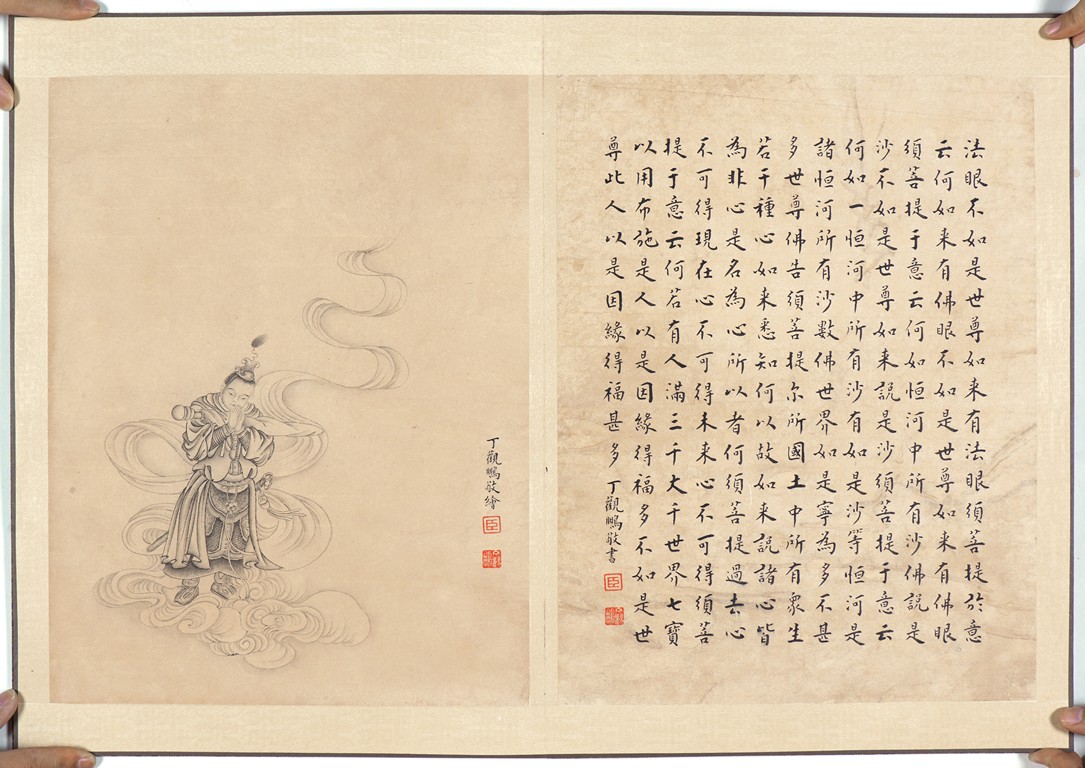 法眼不如是世尊如来有法眼須菩提於意
云何如来有佛眼不如是世尊如来有佛眼
須菩提于意云何如恒河中所有沙佛說是
沙不如是世尊如来說是沙須菩提于意云
何如一恒河中所有沙有如是沙等恒河是
諸恒河所有沙數佛世界如是寧為多不甚
多世尊佛告須菩提尔所國土中所有衆生
若干種心如来悉知何以故如来說諸心皆
為非心是名為心所以者何須菩提過去心
不可得現在心不可得未来心不可得須菩
提于意云何若有人滿三千大千世界七寶
以用布施是人以是因緣得福多不如是世
尊此人以是因緣得福甚多
丁觀鵬敬書
臣
丁觀鵬敬繪
臣